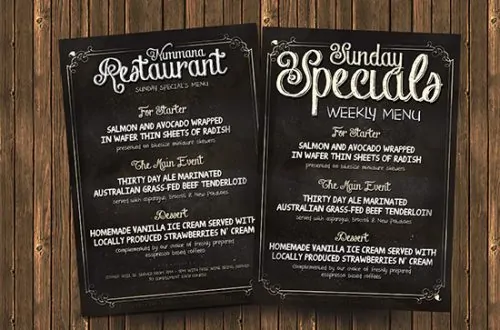 Nunmana
Restaurant
SUNDAY SPECIAL'S MENU
For Starter
SALMON AND AVOCADO WRAPPED
IN WAFER THIN SHEETS OF RADISH
presented on blueside miniature skewers
The Main Event
THIRTY DAY ALE MARINATED
AUSTRALIAN GRASS-FED BEEF TENDERLOID
served with asparagus, broccoli & New Potatoes
Dessert
HOMEMADE VANILLA ICE CREAM SERVED WITH
LOCALLY PRODUCED STRAWBERRIES N' CREAM
Complimented by our choice of freshly prepared
esspresso based coffees
Sunday
Specials
WEEKLY MENU
For Starter
SALMON AND AVOCADO WRAPPED
IN WAFER THIN SHEETS OF RADISH
presented on blueside miniature skewers
The Main Event
THIRTY DAY ALE MARINATED
AUSTRALIAN GRASS-FED BEEF TENDERLOIN
served with asparagus, broccoli & New Potatoes
Dessert
HOMEMADE VANILLA ICE CREAM SERVED WITH
LOCALLY PRODUCED STRAWBERRIES N' CREAM
Complimented by our choice of freshly prepared
esspresso based coffees